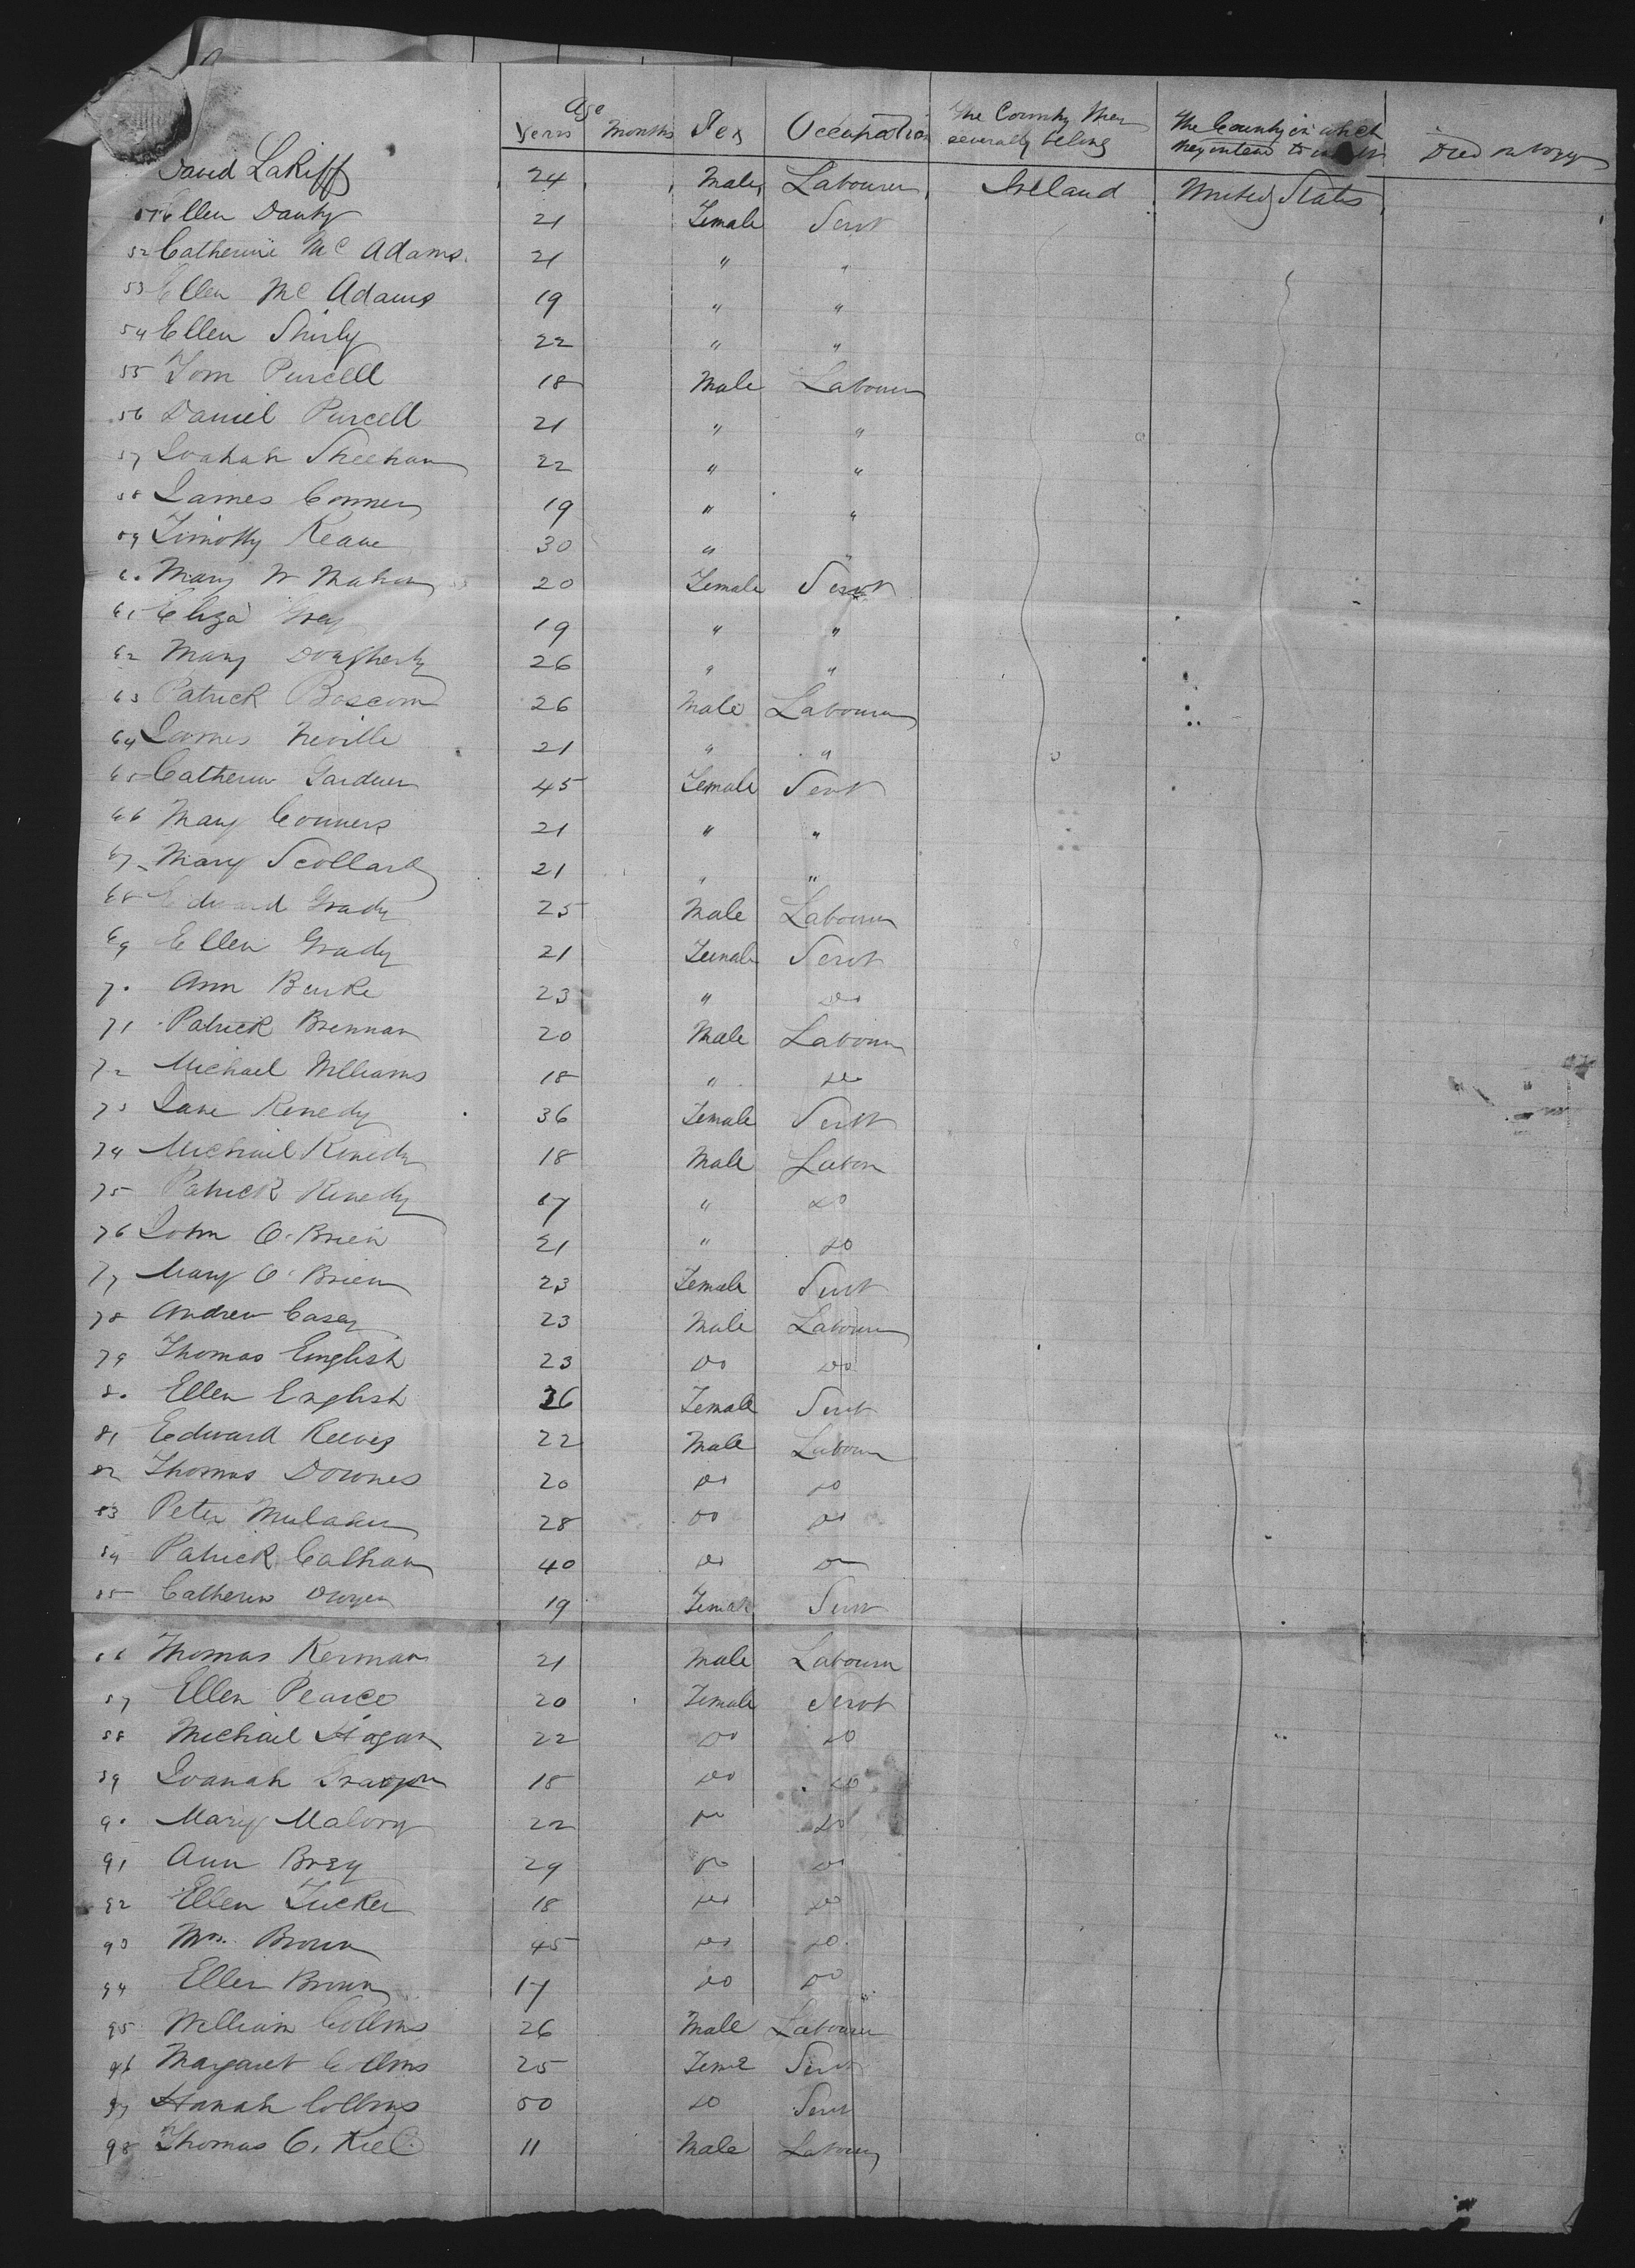 Age
Years Months Sex Occupation The Country they severally belong The Country in which they intend to Died on Voyage
David LaKiff 24 Male Labourer Ireland United States
51 Ellen Danty 21 Female Servt
52 Catherine Mc Adams 21 " "
53 Ellen Mc Adams 19 " "
54 Ellen Shirly 22 " "
55 Tom Purcell 18 Male Labourer
56 Daniel Purcell 21 " "
57 Joahah Sheehan 22 " "
58 James Conner 19 " "
59 Timothy Keane 30 " "
60 Mary Mahon 20 Female Servt
61 Eliza Grey 19 " "
62 Mary Dougherty 26 " "
63 Patrick Boscom 26 Male Labourer
64 James Neville 21 " "
65 Catherin Gardner 45 Female Servt
66 Mary Conners 21 " "
67 Mary Scollard 21 " "
68 Edward Grady 25 Male Labourer
69 Ellen Grady 21 Female Servt
70 Ann Burke 23 " do
71 Patrick Brennan 20 Male Labourer
72 Michael Williams 18 " do
73 Jane Kenedy 36 Female Servt
74 Michael Kenedy 18 Male Labor
75 Patrick Kenedy 17 " do
76 John O'Brien 21 " do
77 Mary O'Brien 23 Female Servt
78 Andrew Casey 23 Male Labourer
79 Thomas English 23 do do
80 Ellen English 26 Female Servt
81 Edward Reeves 22 Male Labour
82 Thomas Downes 20 do do
83 Peter 28 do do
84 Patrick Calhan 40 do do
85 Catherin Dwyer 19 Female Servt
86 Thomas Kerman 21 Male Labourer
87 Ellen Pearce 20 Female Servt
88 Michael Hogan 22 do do
89 Joanah 18 do do
90 Mary Malony 22 do do
91 Ann Bray 29 do do
92 Ellen Tucker 18 do do
93 Mrs. Brown 45 do do
94 Ellen Brown 17 do do
95 William Collins 26 Male Labourer
96 Margaret Collins 25 Feme Servt
97 Hanah Collins 50 do Servt
98 Thomas O. Keef 11 Male Labour